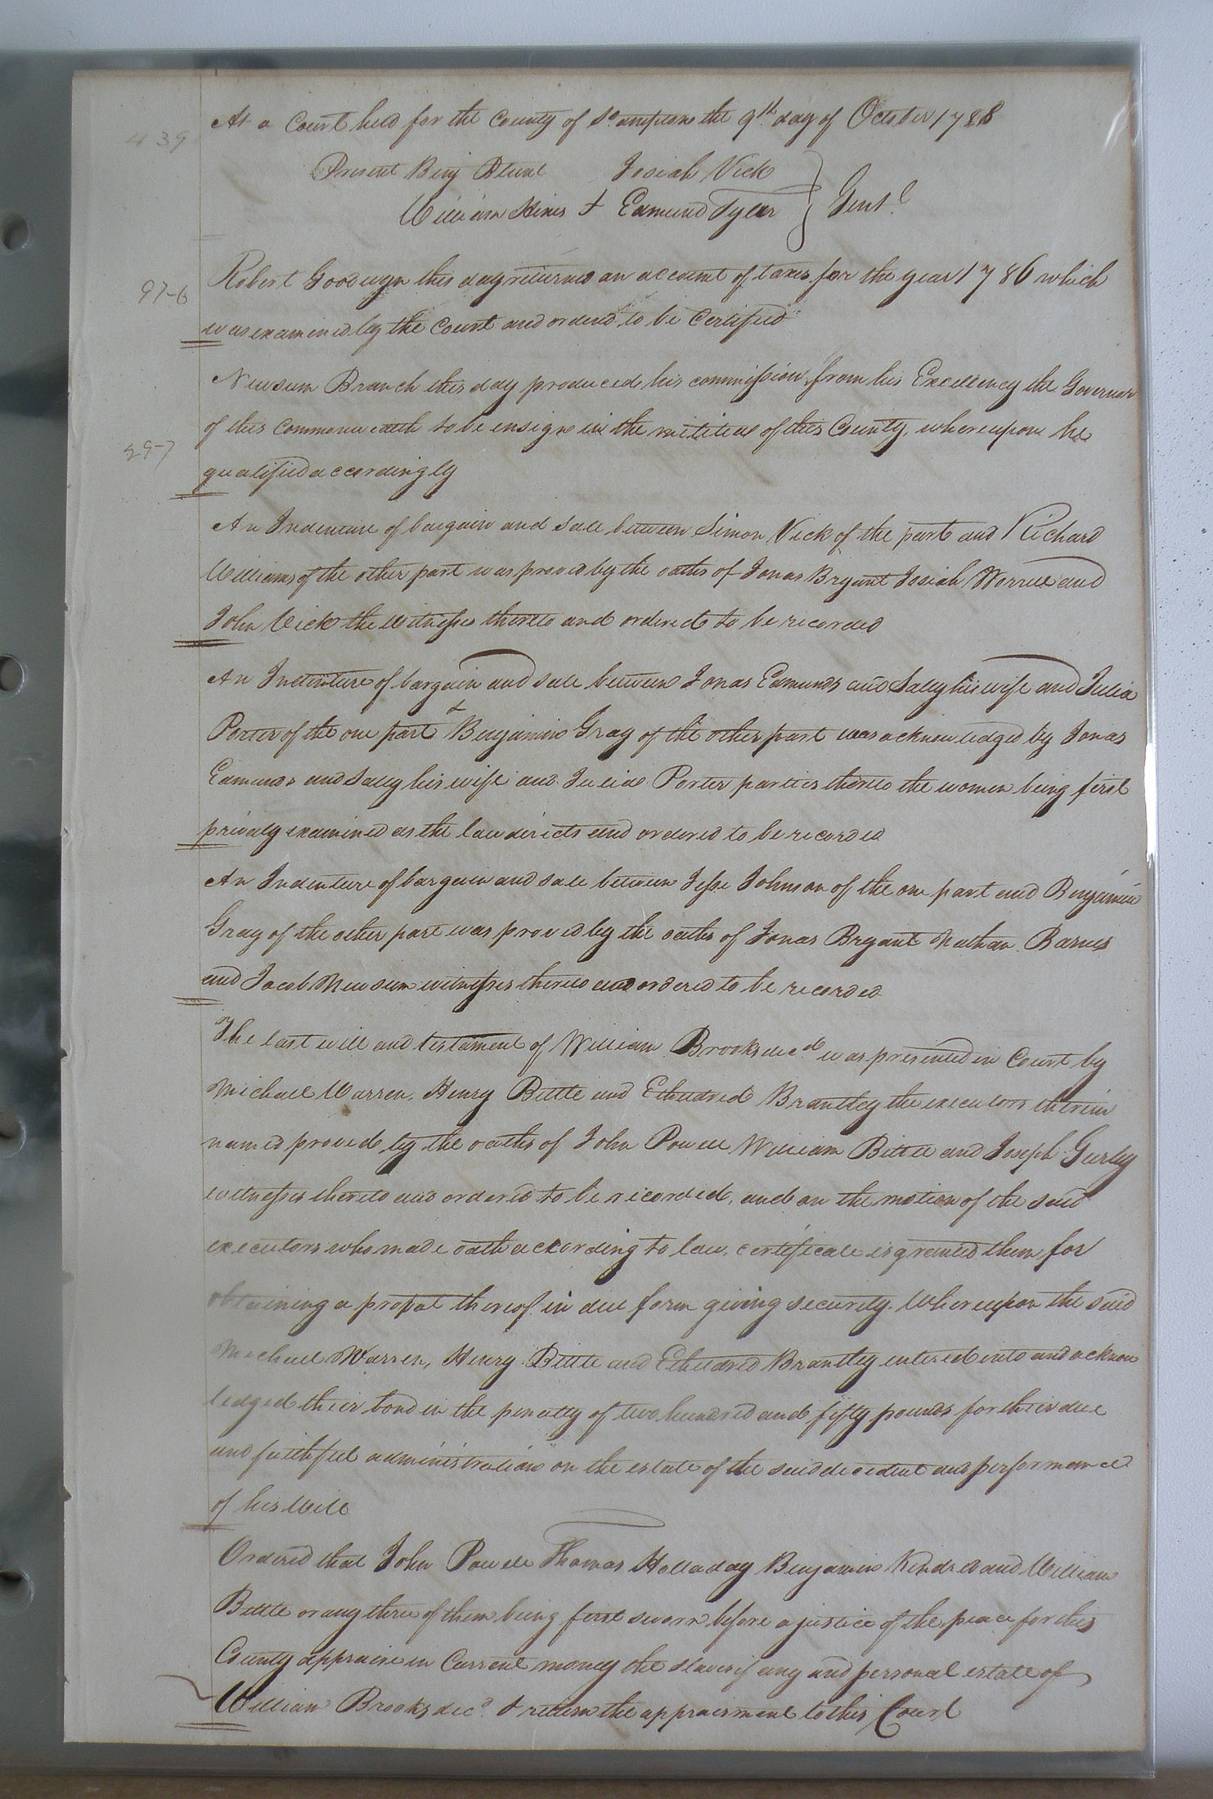 439
At a Court held for the County of So.ampton the 9th day of October 1788
Present Benj Blunt Josiah Vick
William Hines & Edmund Tyler } Gent.
Robert Goodwyn this day returned an account of taxes for the year 1786 which
97-6
was examined by the Court and ordered to be Certified
Newsum Branch this day produced his commission from his Excellency the Governor
of this Commonwealth to be ensign in the militia of this County, whereupon he
29-7
qualified accordingly
An Indenture of bargain and sale between Simon Vick of the part and Richard
Williams of the other part was proved by the oaths of Jonas Bryant Josiah Worrell and
John Vick the witnesses thereto and ordered to be recorded
An Indenture of bargain and sale between Jonas Edmunds and Sally his wife and Julia
Porter of the one part & Benjamin Gray of the other part was acknowledged by Jonas
Edmunds and Sally his wife and Julia Porter parties thereto the women being first
privaly examined as the law directs and ordered to be recorded
An Indenture of bargain and sale between Jesse Johnson of the one part and Benjamin
Gray of the other part was proved by the oaths of Jonas Bryant Nathan Barnes
and Jacob Newsum witnesses thereto and ordered to be recorded
The last will and testament of William Brooks decd was presented in Court by
Michael Warren, Henry Bittle and Etheldred Brantley the executors therein
named proved by the oaths of John Powell William Bittle and Joseph Gurley
witnesses thereto and ordered to be recorded, and on the motion of the said
executors who made oath according to law, certificate is granted them for
obtaining a probat thereof in due form giving security. Whereupon the said
Michael Warren, Henry Bittle and Etheldred Brantley entered into and acknow
ledged their bond in the penalty of two hundred and fifty pounds for their due
and faithful administration on the estate of the said decedent and performance
of his Will
Ordered that John Powell Thomas Holladay Benjamin Kindred and William
Bittle or any three of them being first sworn before a justice of the peace for this
County appraise in Current money the slaves if any and personal estate of
William Brooks decd. & return the appraisment to this Court